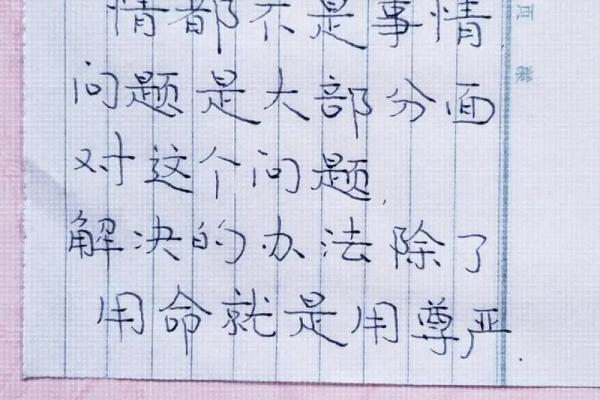 情都不是事情
问题是大部分面
对这个问题,
解决的办法除了
用命就是用尊严.